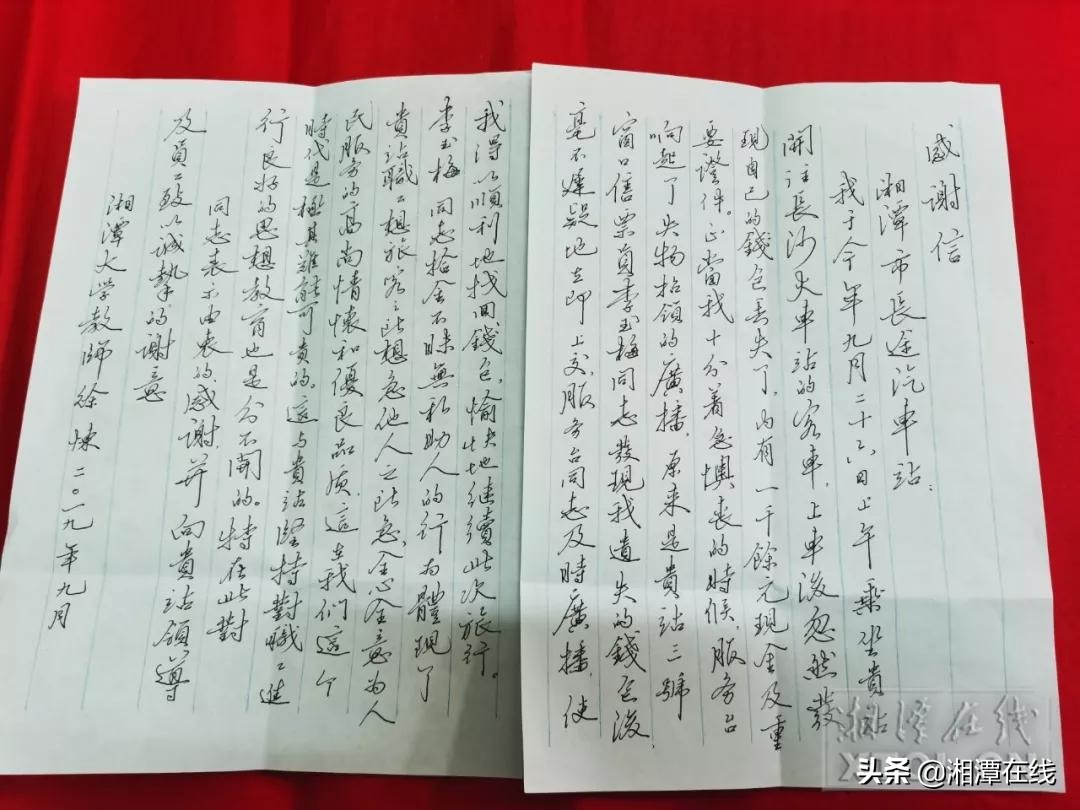 感谢信
湘潭市長途汽車站:
我于今年九月二十六日上午乘坐貴
開往長沙火車站的客車,上車後忽然發
現自己的錢包丢失了,内有一千餘元現金及重
要證件。正當我十分着急懊喪的時候,服务台
响起了失物招領的廣播,原来是貴站三號
窗口售票員李玉梅同志發現我遺失的錢包後,
毫不遲疑地立即上交,服务台同志及時廣播,使
我得以順利地找回錢包,愉快地继續此次旅行。
李玉梅同志拾金不昧無私助人的行为體現了
貴站職工想旅客之所想急他人之所急,全心全意为人
民服务的高尚情懷和優良品质,這在我们這个
時代是極其難能可貴的。這与貴站堅持對職工進
行良好的思想教育也是分不開的。特在此對
同志表示由衷的感谢,并向貴站領導
及員工致以誠摯的谢意
湘潭大学教師徐煉二〇一九年九月
湘潭在线
头条 @湘潭在线